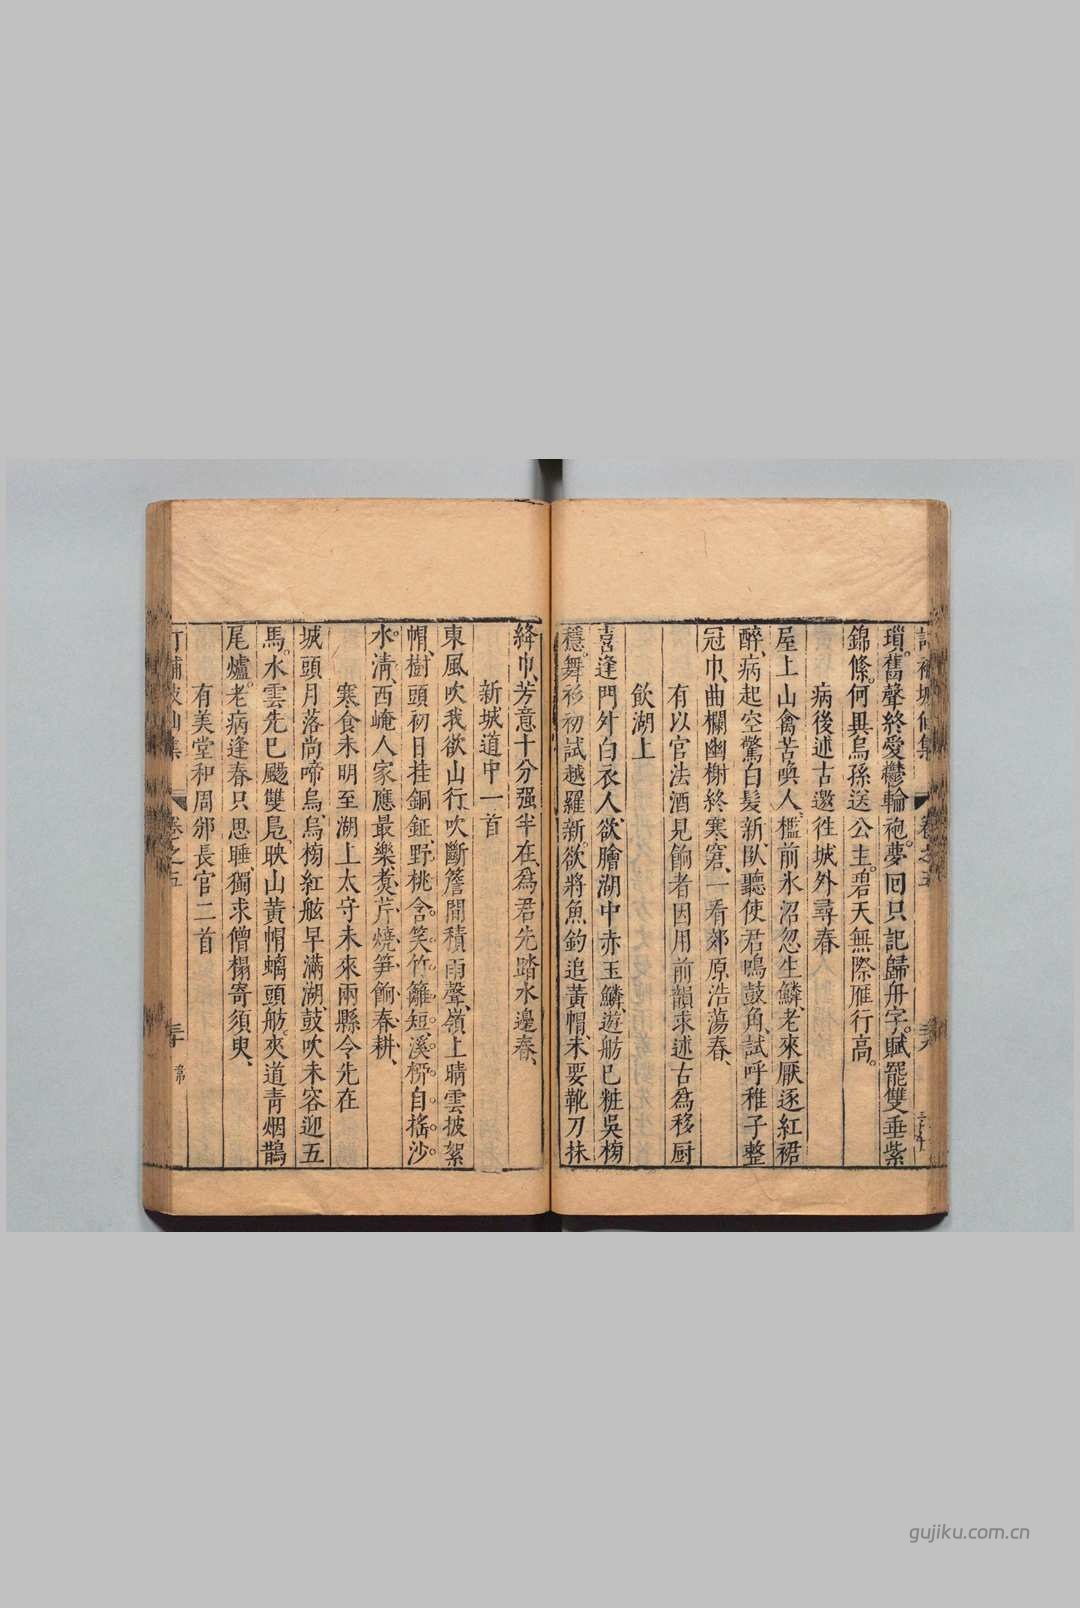 瑣。舊聲終愛鬱輪袍。夢回只記歸舟字。賦罷雙垂紫
錦絛。何異烏孫送公主。碧天無際雁行高。
病後述古邀徃城外尋春
屋上山禽苦喚人、檻前氷沼忽生鱗、老來厭逐紅裙
醉、病起空驚白髮新、臥聽使君鳴鼓角、試呼稚子整
冠巾、曲欄幽榭終寒窘、一看郊原浩蕩春、
有以官法酒見餉者因用前韻求述古爲移厨
飲湖上
喜逢門外白衣人、欲膾湖中赤玉鱗、遊舫已粧吳榜
穩、舞衫初試越羅新。欲將魚釣追黃帽、未要靴刀抹
絳巾、芳意十分强半在、爲君先踏水邊春、
新城道中一首
東風吹我欲山行、吹斷簷間積雨聲、嶺上晴雲披絮
帽、樹頭初日挂銅鉦、野桃含笑竹籬短、溪桺自搖沙
水。清、西崦人家應最樂、煑芹燒笋餉春耕、
寒食未明至湖上太守未來兩縣令先在
城頭月落尚啼烏、烏榜紅舷早滿湖、鼓吹未容迎五
馬。水雲先已颺雙鳧、映山黃帽螭頭舫。夾道青烟鵲
尾爐。老病逢春只思睡、獨求僧榻寄須臾、
有美堂和周邠長官二首
卷之五
gujiku.com.cn